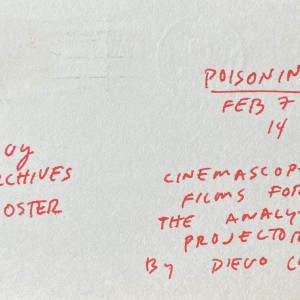 POISONIN
FEB 7
14
ay
RCHIVES
OSTER
CINEMASCOP
FILMS FOR
THE ANALY
PROJECTOR
BY DIEGO